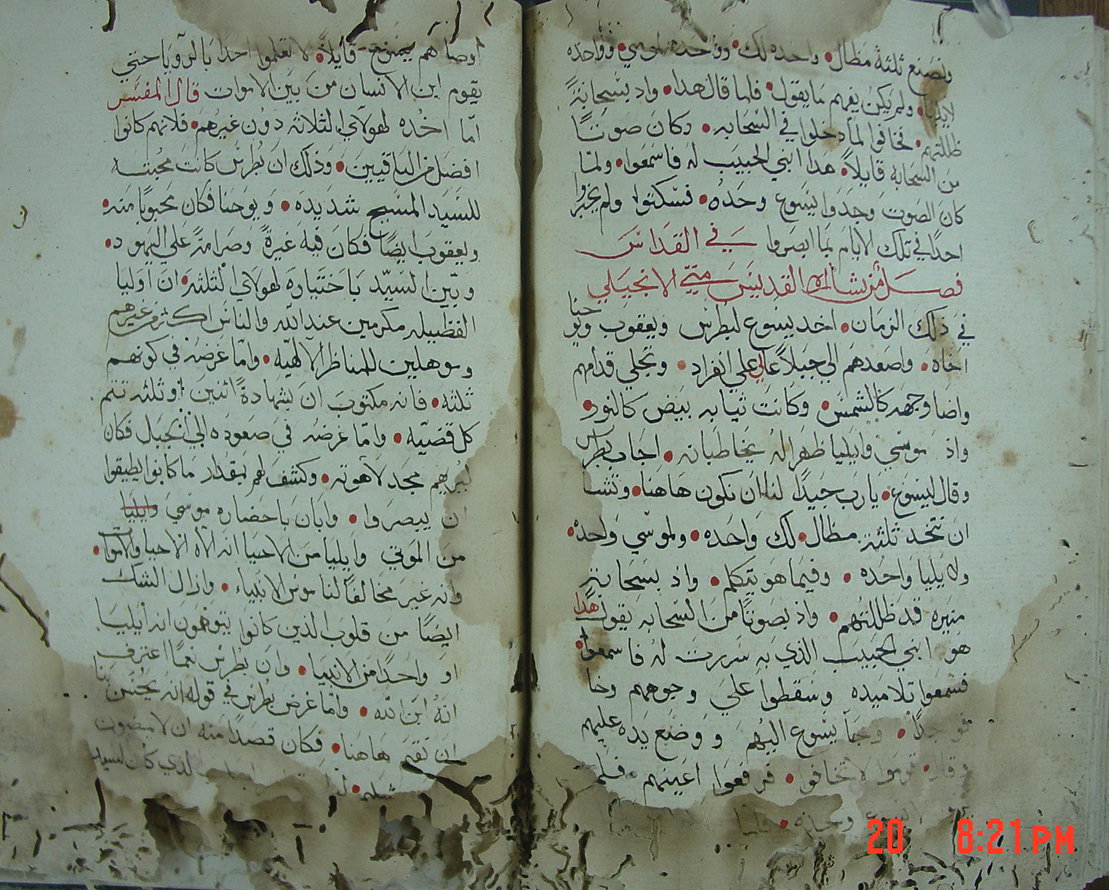 ونصنع ثلثة مظال واحده لك وواحده لموسي وواحده
لايليا ولم يكن يفهم ما يقول فلما قال هذا واذ بسحابة
ظللتهم فخافوا لما دخلوا في السحابه وكان صوتًا
من السحابه قايلاً هذا ابني الحبيب له فاسمعوا ولما
كان الصوت وجدوا يسوع وحده فسكتوا ولم يخبروا
احدًا في تلك الايام بما ابصروا في القداس
فصل من بشارة القديس متي الانجيلي
في ذلك الزمان اخد يسوع لبطرس ويعقوب ويوحنا
اخاه واصعدهم الي جبلاً عالي علي انفراد وتجلي قدامهم
واضا وجهه كالشمس وكانت ثيابه بيض كالنور
واذ موسي وايليا ظهرا له يخاطبانه اجاب بطرس
وقال ليسوع يارب جيدًا لنا ان نكون هاهنا وتشا
ان نتخد ثلثة مظال لك واحده ولموسي واحده
ولايليا واحده وفيما هو يتكلم واذ بسحابة
منيره قد ظللتهم واذ بصوتًا من السحابه يقول هذا
هو ابني الحبيب الذي به سررت له فاسمعوا
فسمعوا تلاميده وسقطوا علي وجوههم وخا
فو جدًا وجا يسوع اليهم ووضع يده عليهم
وقال قوموا لا تخافو فرفعوا اعينهم فلم
اوصاهم يسوع قايلاً لا تعلموا احدًا بالرويا حتي
يقوم ابن الانسان من بين الاموات قال المفسر
اما اخده لهولاي الثلاثه دون غيرهم فلانهم كانوا
افضل من الباقيين وذلك ان بطرس كانت محبته
للسيد المسيح شديده ويوحنا فكان محبوبًا منه
ويعقوب ايضًا فكان فيه غيرة وصرامة علي اليهود
وبين السيد باختياره لهولاي الثلثه ان اوليا
الفظيله مكرمين عند الله والناس اكثر من غيرهم
وموهلين للمناظر الالهيه واما غرضه في كونهم
ثلثه فانه مكتوب ان بشهادة اثنين او ثلثه تتم
كل قضيه واما غرضه في صعوده الي الجبل فكان
ليريهم مجد لاهوته وكشف لهم بمقدار ما كانوا يطيقوا
ان يبصروا وابان باحضاره موسي وايليا
من الموتي وايليا من الاحيا انه الاه الاحيا والاموات
وانه غير مخالفًا لناموس الانبياء وازال الشك
ايضًا من قلوب الذين كانوا يتوهمون انه ايليا
او واحدًا من الانبيا وان بطرس نعمًا اعترف
انه ابن الله واما غرض بطرس في قوله انه يحسن بنا
ان نقم هاهنا فكان قصدًا منه ان لا يمضون
20 8:21 PM